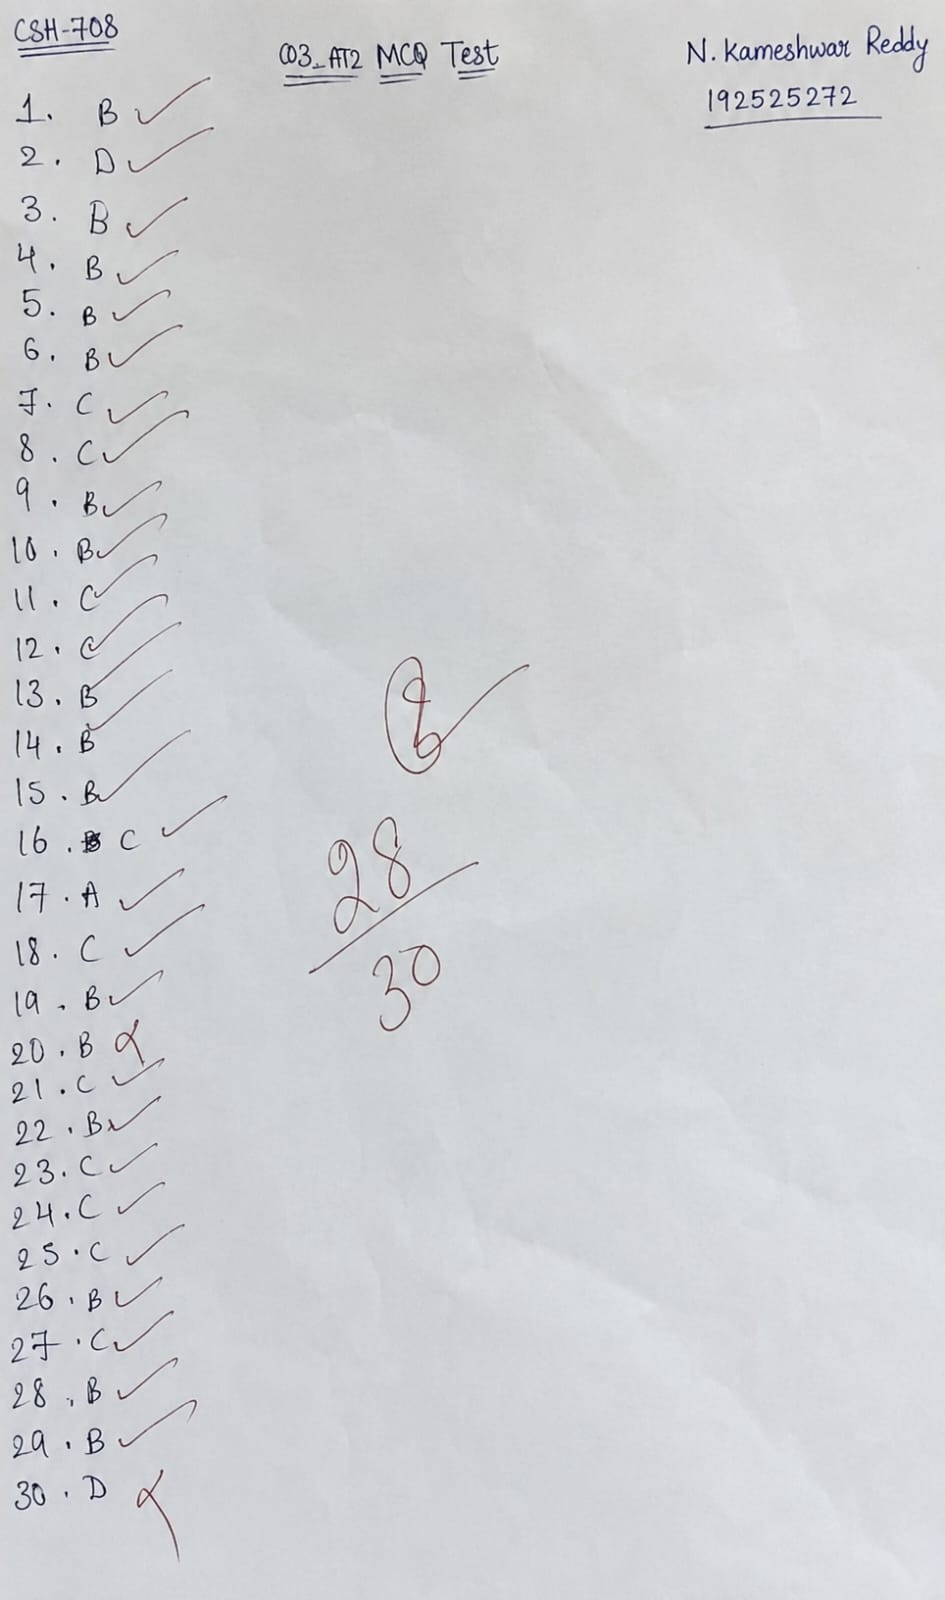 CSH-708
CO3_AT2 MCQ Test
N. Kameshwar Reddy
192525272
1. B
2. D
3. B
4. B
5. B
6. B
7. C
8. C
9. B
10. B
11. C
12. C
13. B
14. B
15. B
16. C
17. A
18. C
19. B
20. B
21. C
22. B
23. C
24. C
25. C
26. B
27. C
28. B
29. B
30. D
28
30